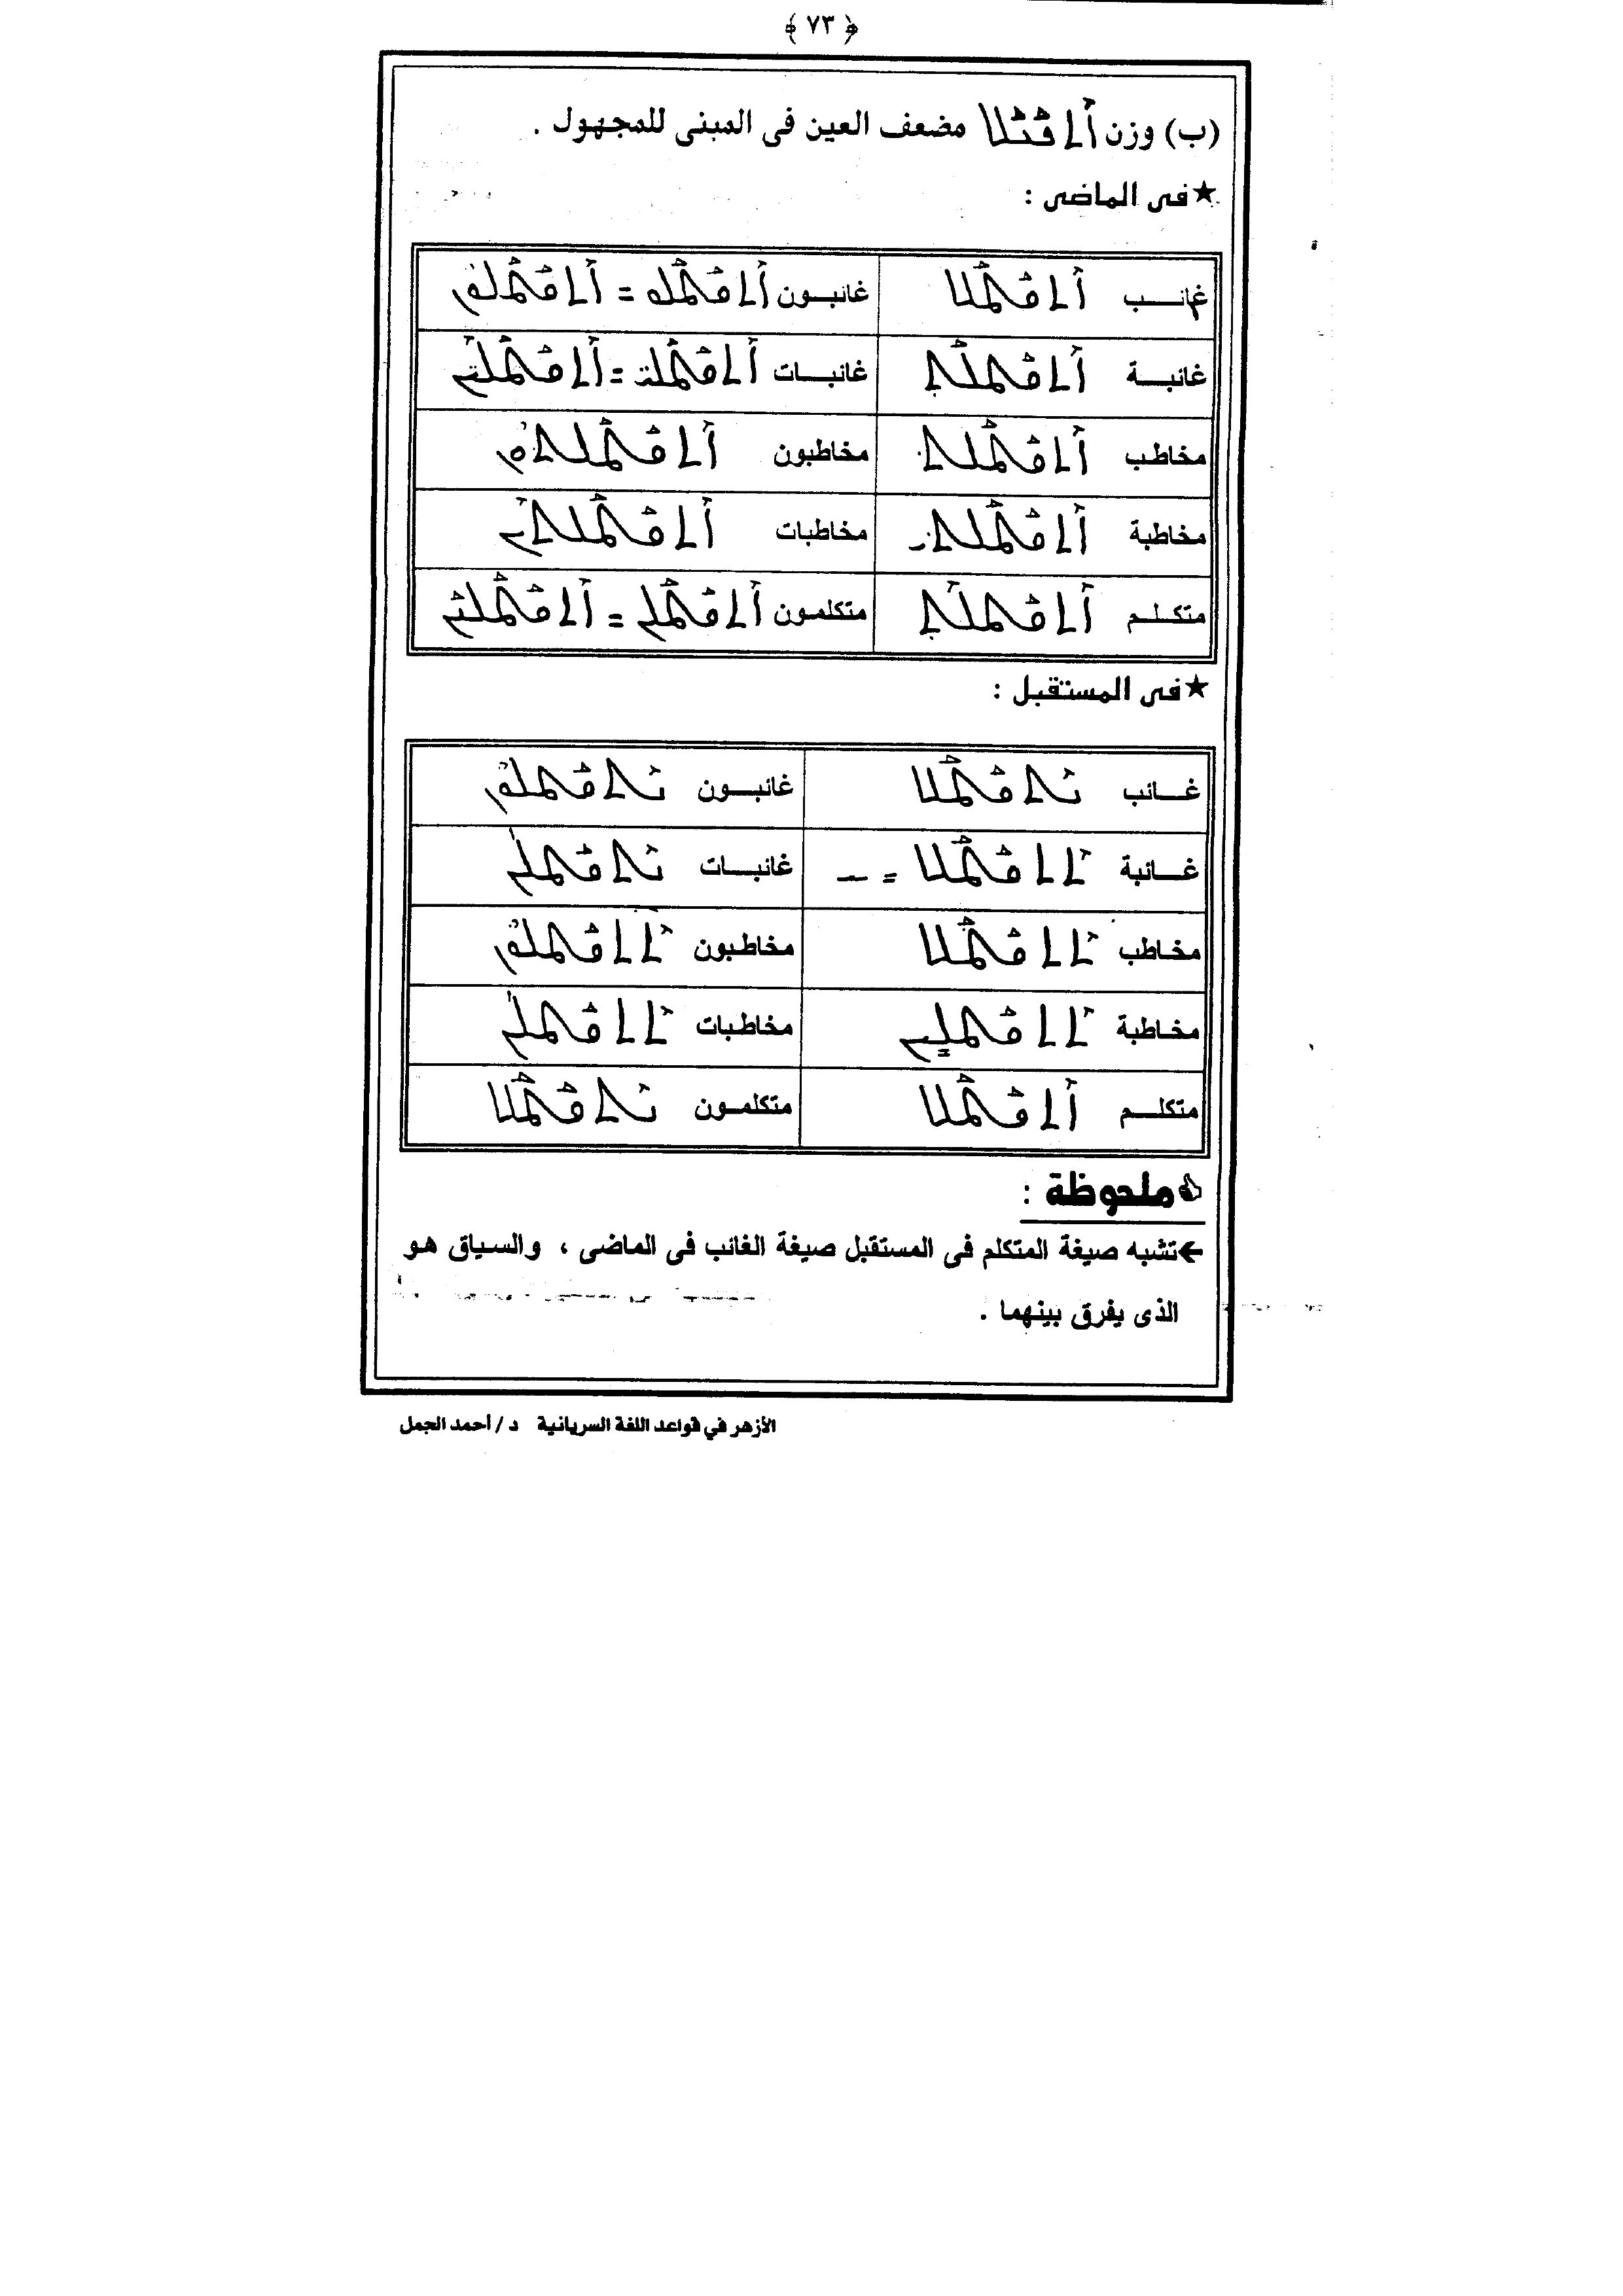 ﴿ ٧٣ ﴾
(ب) وزن مضعف العين فى المبنى للمجهول .
★ فى الماضى :
غائب ܐܬܩܛܠ غائبون ܐܬܩܛܠܘ = ܐܬܩܛܠܘܢ
غائبة ܐܬܩܛܠܬ غائبات ܐܬܩܛܠܝ = ܐܬܩܛܠܝܢ
مخاطب ܐܬܩܛܠܬ مخاطبون ܐܬܩܛܠܬܘܢ
مخاطبة ܐܬܩܛܠܬܝ مخاطبات ܐܬܩܛܠܬܝܢ
متكلم ܐܬܩܛܠܬ متكلمون ܐܬܩܛܠܢ = ܐܬܩܛܠܢܢ
★ فى المستقبل :
غائب ܢܬܩܛܠ غائبون ܢܬܩܛܠܘܢ
غائبة ܬܬܩܛܠ = ـ غائبات ܢܬܩܛܠܢ
مخاطب ܬܬܩܛܠ مخاطبون ܬܬܩܛܠܘܢ
مخاطبة ܬܬܩܛܠܝܢ مخاطبات ܬܬܩܛܠܢ
متكلم ܐܬܩܛܠ متكلمون ܢܬܩܛܠ
ملحوظة :
← تشبه صيغة المتكلم فى المستقبل صيغة الغائب فى الماضى ، والسياق هو
الذى يفرق بينهما .
الأزهر في قواعد اللغة السريانية د / أحمد الجمل